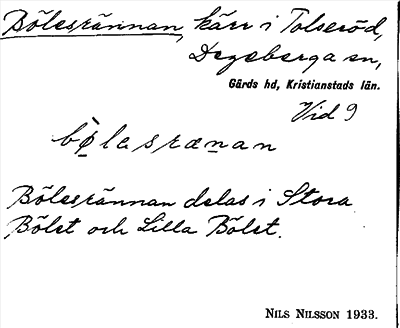 Bölesrännan, kärr i Tolseröd,
Degeberga sn,
Gärds hd, Kristianstads län.
Vid 9
bø̀lesrænan
Bölesrännan delas i Stora
Bölet och Lilla Bölet.
NILS NILSSON 1933.